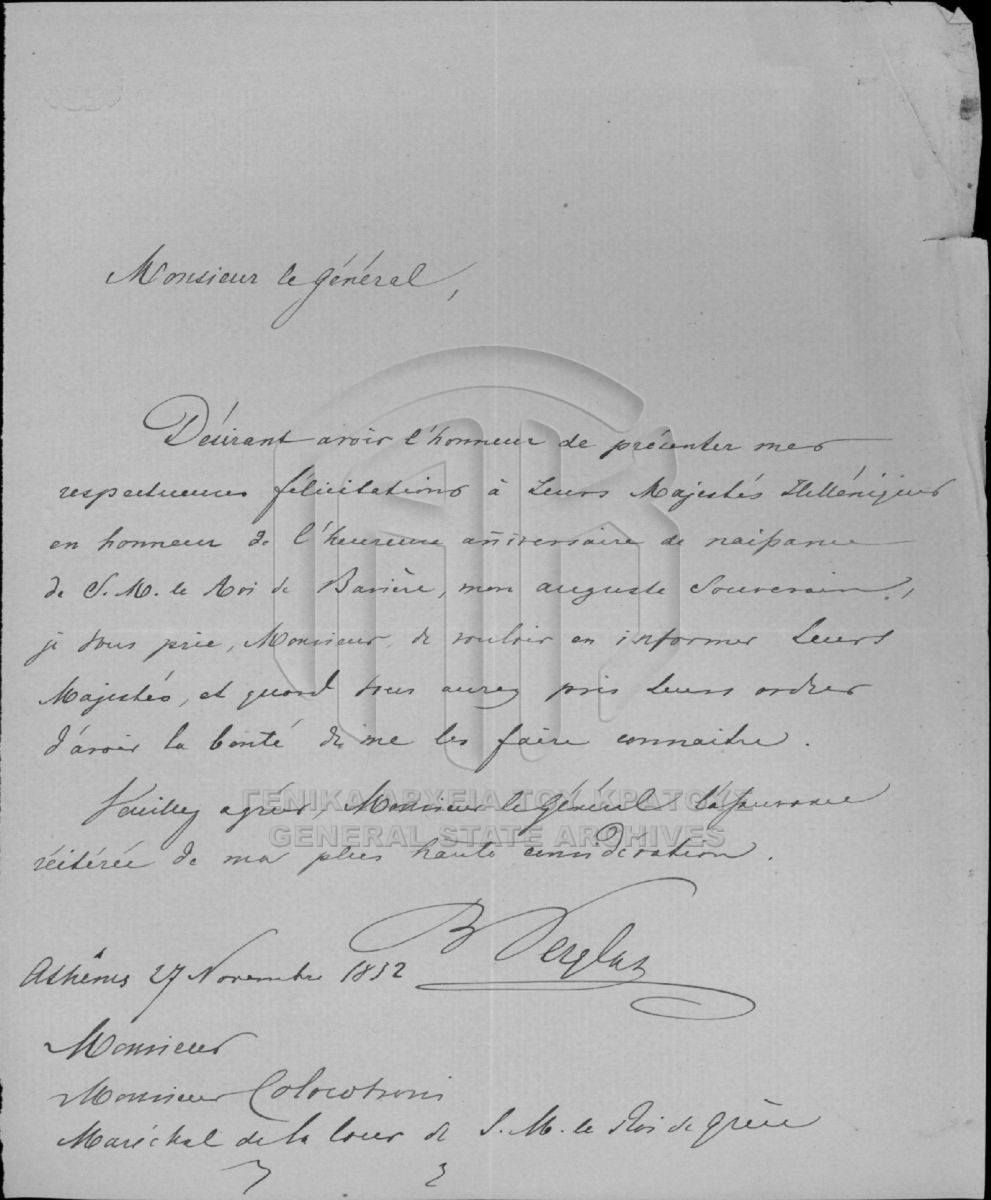 Monsieur le Général,
Désirant avoir l'honneur de présenter mes
respectueuses félicitations à Leurs Majestés Helléniques
en honneur de l'heureuse anniversaire de naissance
de S. M. le Roi de Bavière, mon auguste Souverain,
je vous prie, Monsieur, de vouloir en informer Leurs
Majestés, et quand vous aurez pris Leurs ordres
d'avoir la bonté de me les faire connaitre.
ΓΕΝΙΚΑ ΑΡΧΕΙΑ ΤΟΥ ΚΡΑΤΟΥΣ
Veuillez agréer, Monsieur le Général l'assurance
GENERAL STATE ARCHIVES
réitérée de ma plus haute considération.
B Verglas
Athènes 27 Novembre 1852
Monsieur
Monsieur Colocotroni
Maréchal de la Cour de S. M. le Roi de Grèce